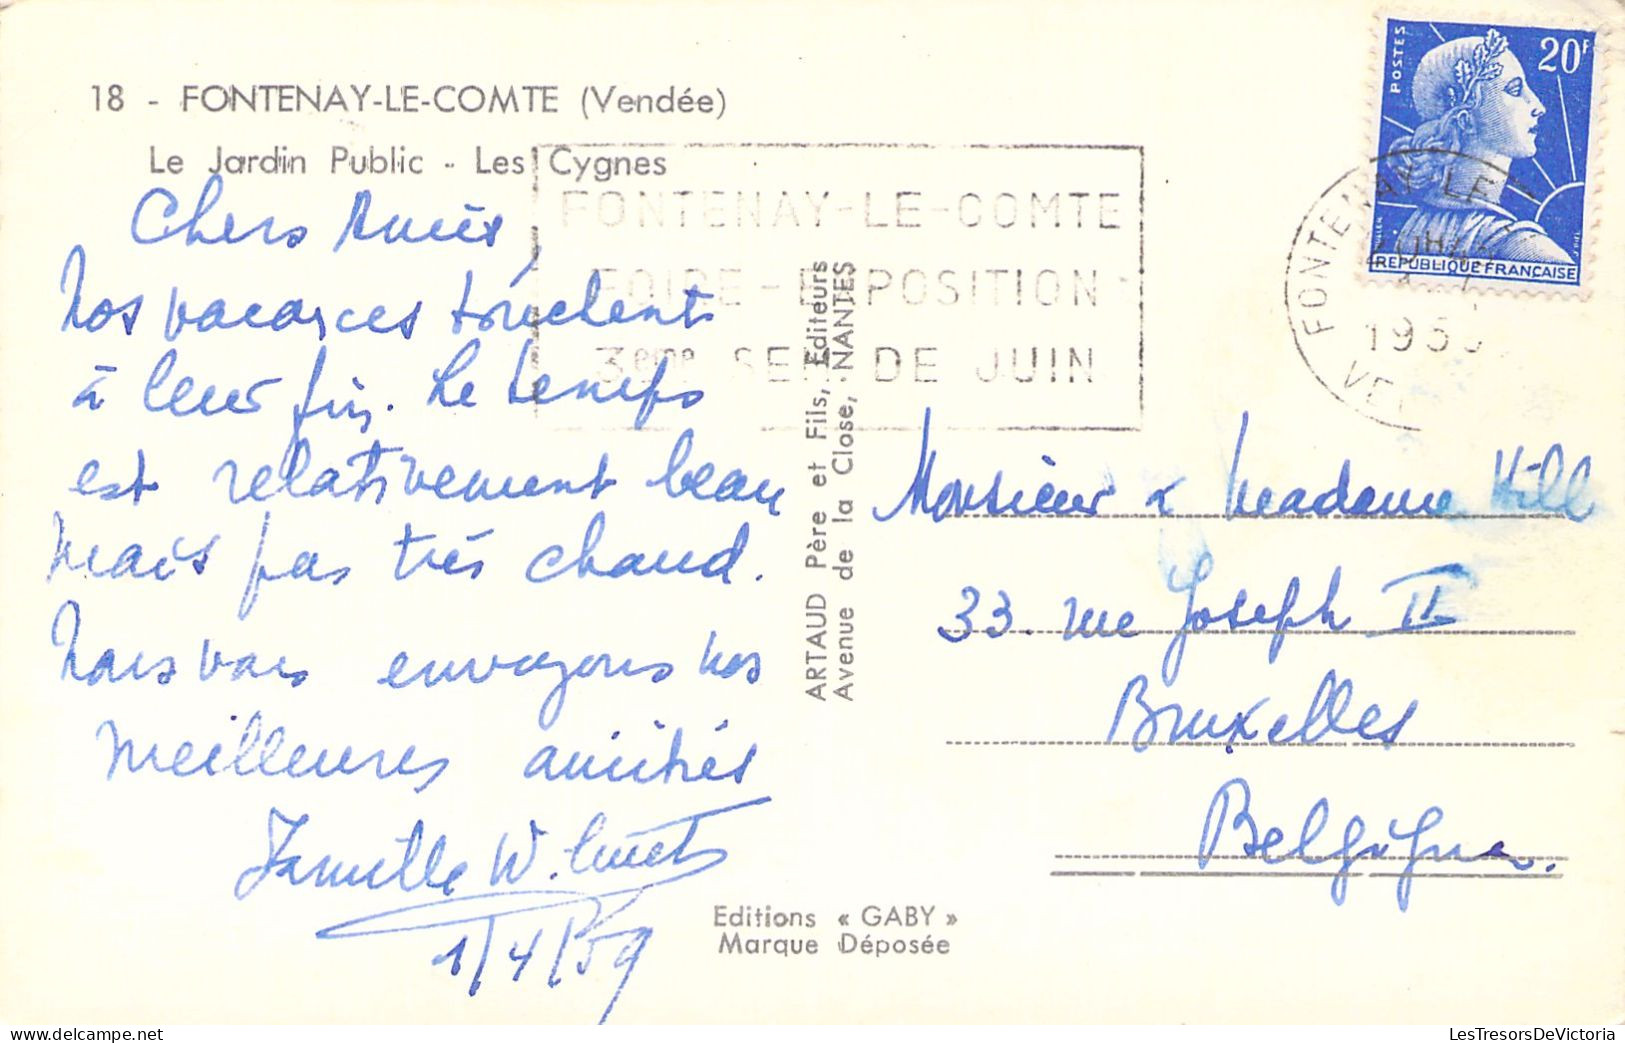 18 - FONTENAY-LE-COMTE (Vendée)
Le Jardin Public - Les Cygnes
Chers Amis,
Nos vacances touchent
à leur fin. Le temps
est relativement beau
mais pas très chaud.
Nous vous envoyons nos
meilleures amitiés
Famille W.
1/4/59
FONTENAY-LE-COMTE
FOIRE-EXPOSITION
3eme SEM DE JUIN
ARTAUD Père et Fils, Editeurs
Avenue de la Close, NANTES
Editions « GABY »
Marque Déposée
POSTES
20F
REPUBLIQUE FRANÇAISE
FONTENAY LE
VE
Monsieur & Madame Hill
33. rue Joseph II
Bruxelles
Belgique.
LesTresorsDeVictoria
LesTresorsDeVictoria.com